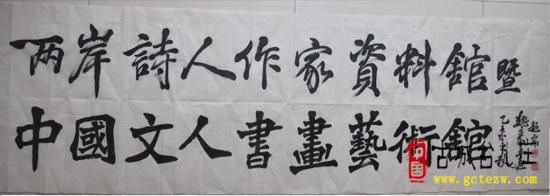 两岸詩人作家資料館暨
中國文人書畫藝術館
中国
www.gctezw.com